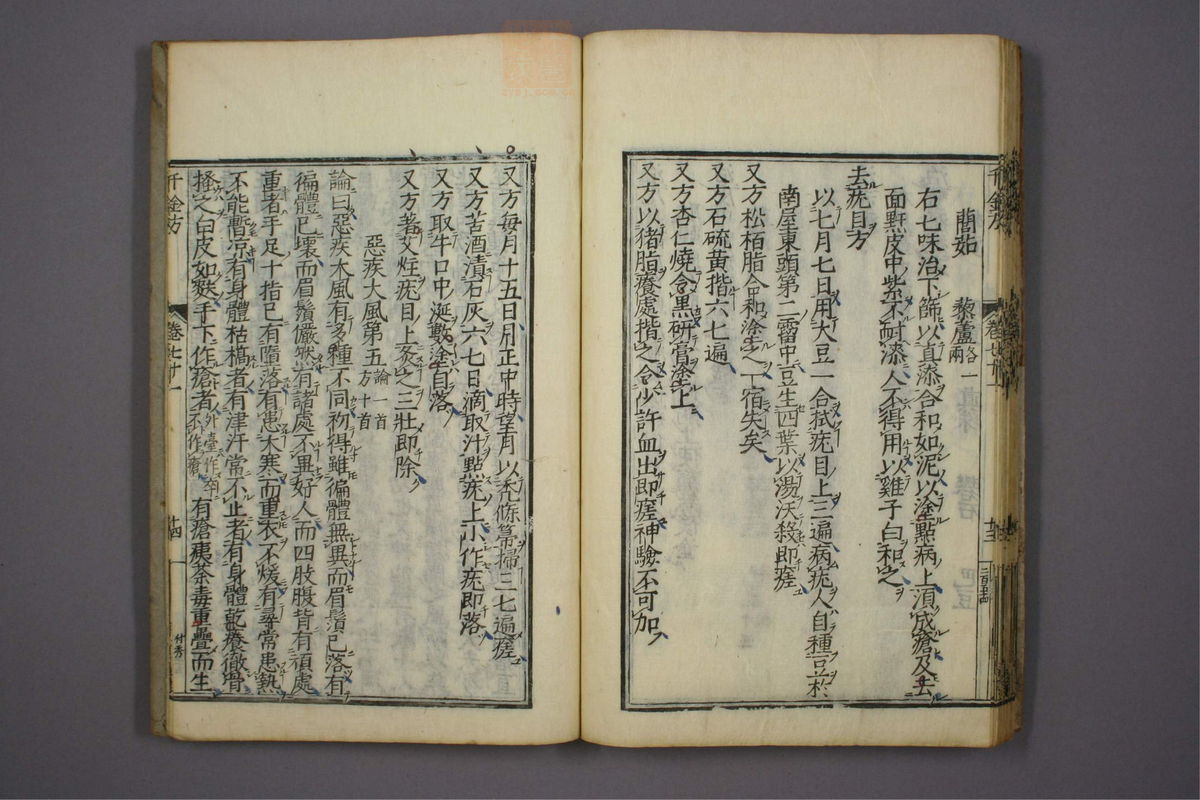 䕡茹　藜蘆各一兩
右七味治下篩以真漆合和如泥以塗點病上須成瘡及去
面䵟皮中紫不耐漆人不得用以雞子白和之
去疣目方
以七月七日用大豆一合拭疣目上三遍病疣人自種豆於
南屋東頭第二霤中豆生四葉以湯沃殺即瘥
又方松栢脂合和塗之一宿失矣
又方石硫黃揩六七遍
又方杏仁燒令黑研膏塗上
又方以猪脂癢處揩之令少許血出即瘥神驗不可加
千金方
卷七十一
又方每月十五日月正中時望月以禿條箒掃三七遍瘥
又方苦酒漬石灰六七日滴取汁點疣上小作疣即落
又方取牛口中涎數塗自落
又方著艾炷疣目上灸之三壯即除
惡疾大風第五論一首方十首
論曰惡疾大風有多種不同初得雖徧體無異而眉鬚已落有
徧體已壞而眉鬚儼然有諸處不異好人而四肢腹背有頑處
重者手足十指已有墮落有患大寒而重衣不煖有尋常患熱
不能暫凉有身體枯槁者有津汁常不止者有身體乾癢徹骨
搔之白皮如麩手下作瘡者外臺作卒不作瘡有瘡痍荼毒重疊而生
千金方
卷七十一
廿四
付秀